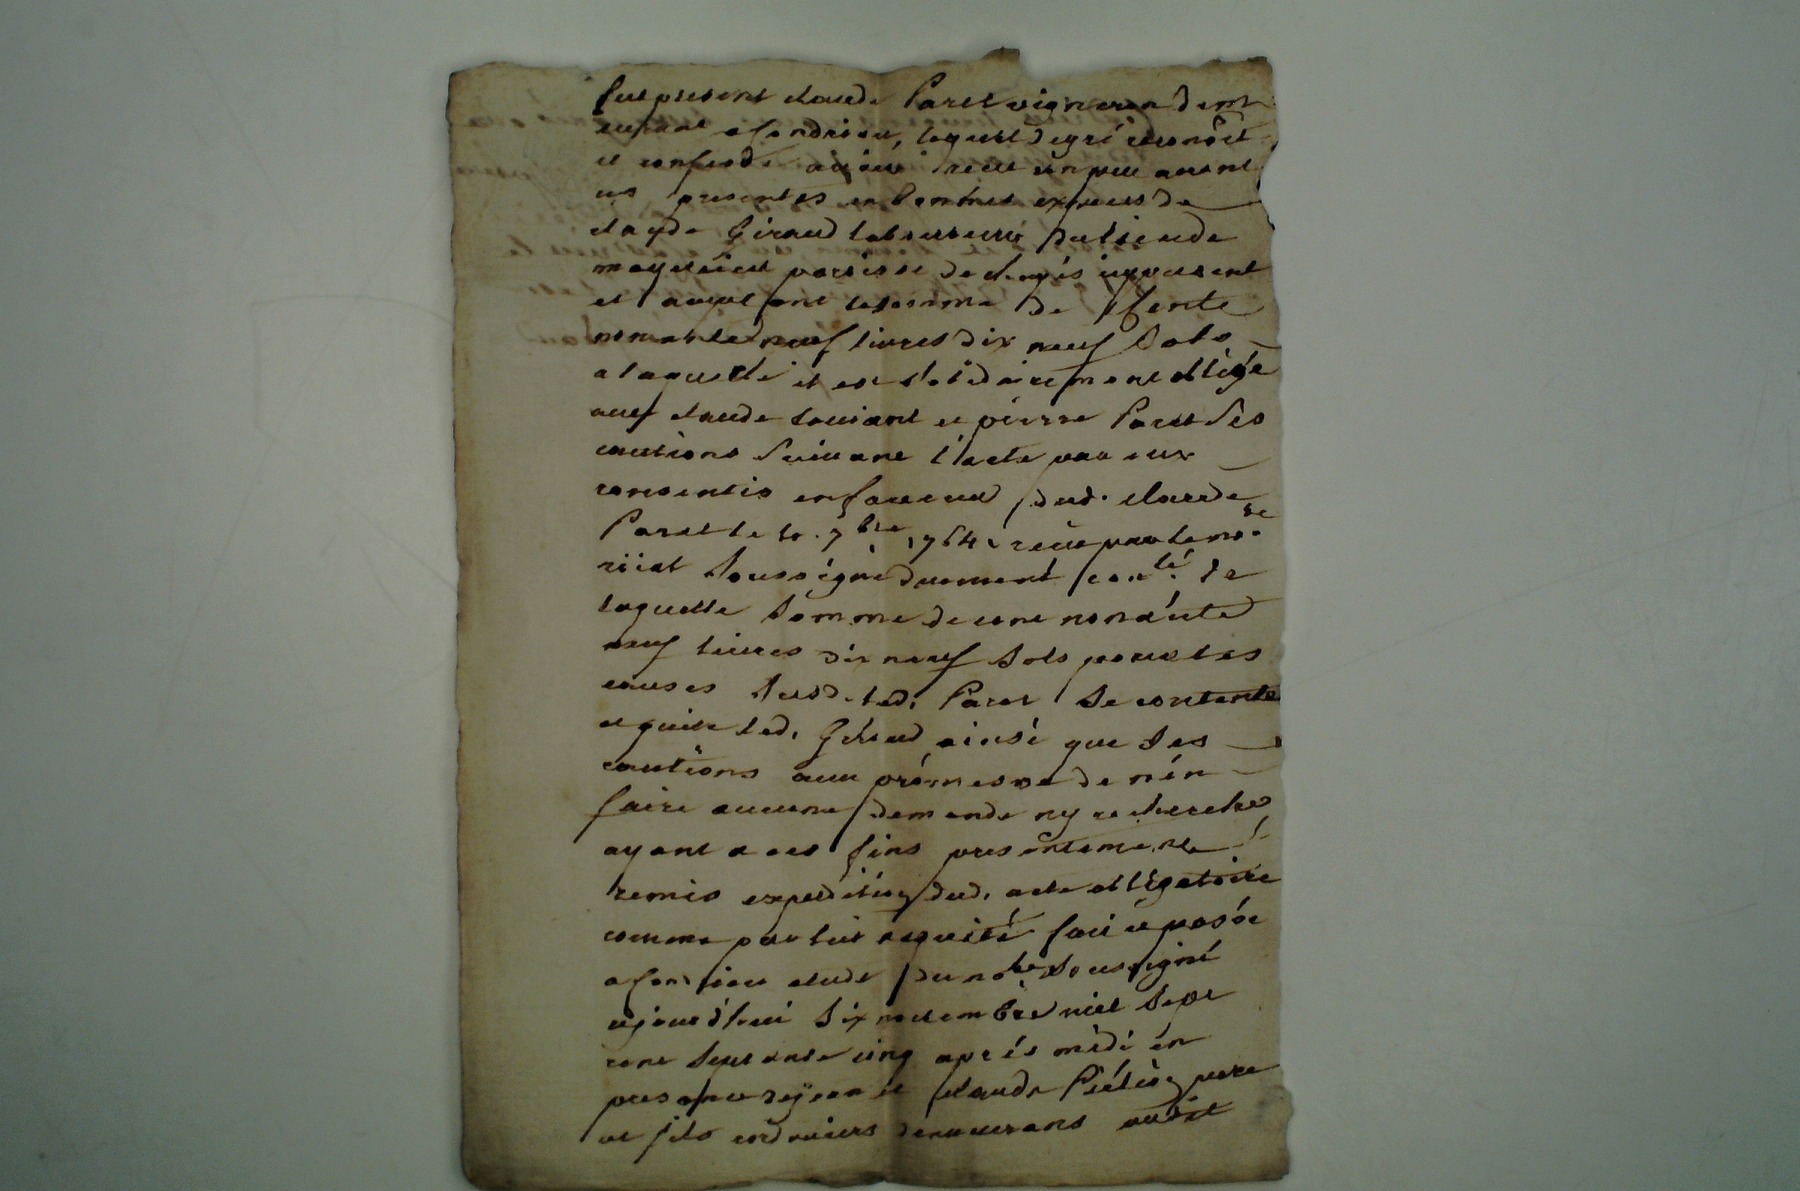 fut present claude Paret vigneron dem
eurant a Condrieu, lequel de gré reconoit
et confesse avoir receu un peu avant
ces presentes en bonnes especes de
claude Giraud laboureur du lieu de
parroisse de present
et acceptant la somme de Cente
nonante neuf livres dix neuf sols
a laquelle il est solidairement obligé
avec claude et pierre Paret ses
cautions suivant l'acte par eux
consentis en faveur dud. claude
Paret le 10. 7bre 1764 receu par le no.re
roiial soussigné duement conlé. de
laquelle somme de cent nonante
neuf livres dix neuf sols pour les
causes susd. led. Paret se contente
et quite led. Giraud ainsi que ses
cautions avec promesse de n'en
faire aucune demande ny recherche
ayant a ces fins presentement
remis expedition dud. acte obligatoire
comme par lui aquité fait et passé
a Condrieu etude du nore soussigné
ajourd'hui six novembre mil sept
cent septante cinq aprés midi en
presence de jean et claude pere
et fils cordoniers demeurans audit